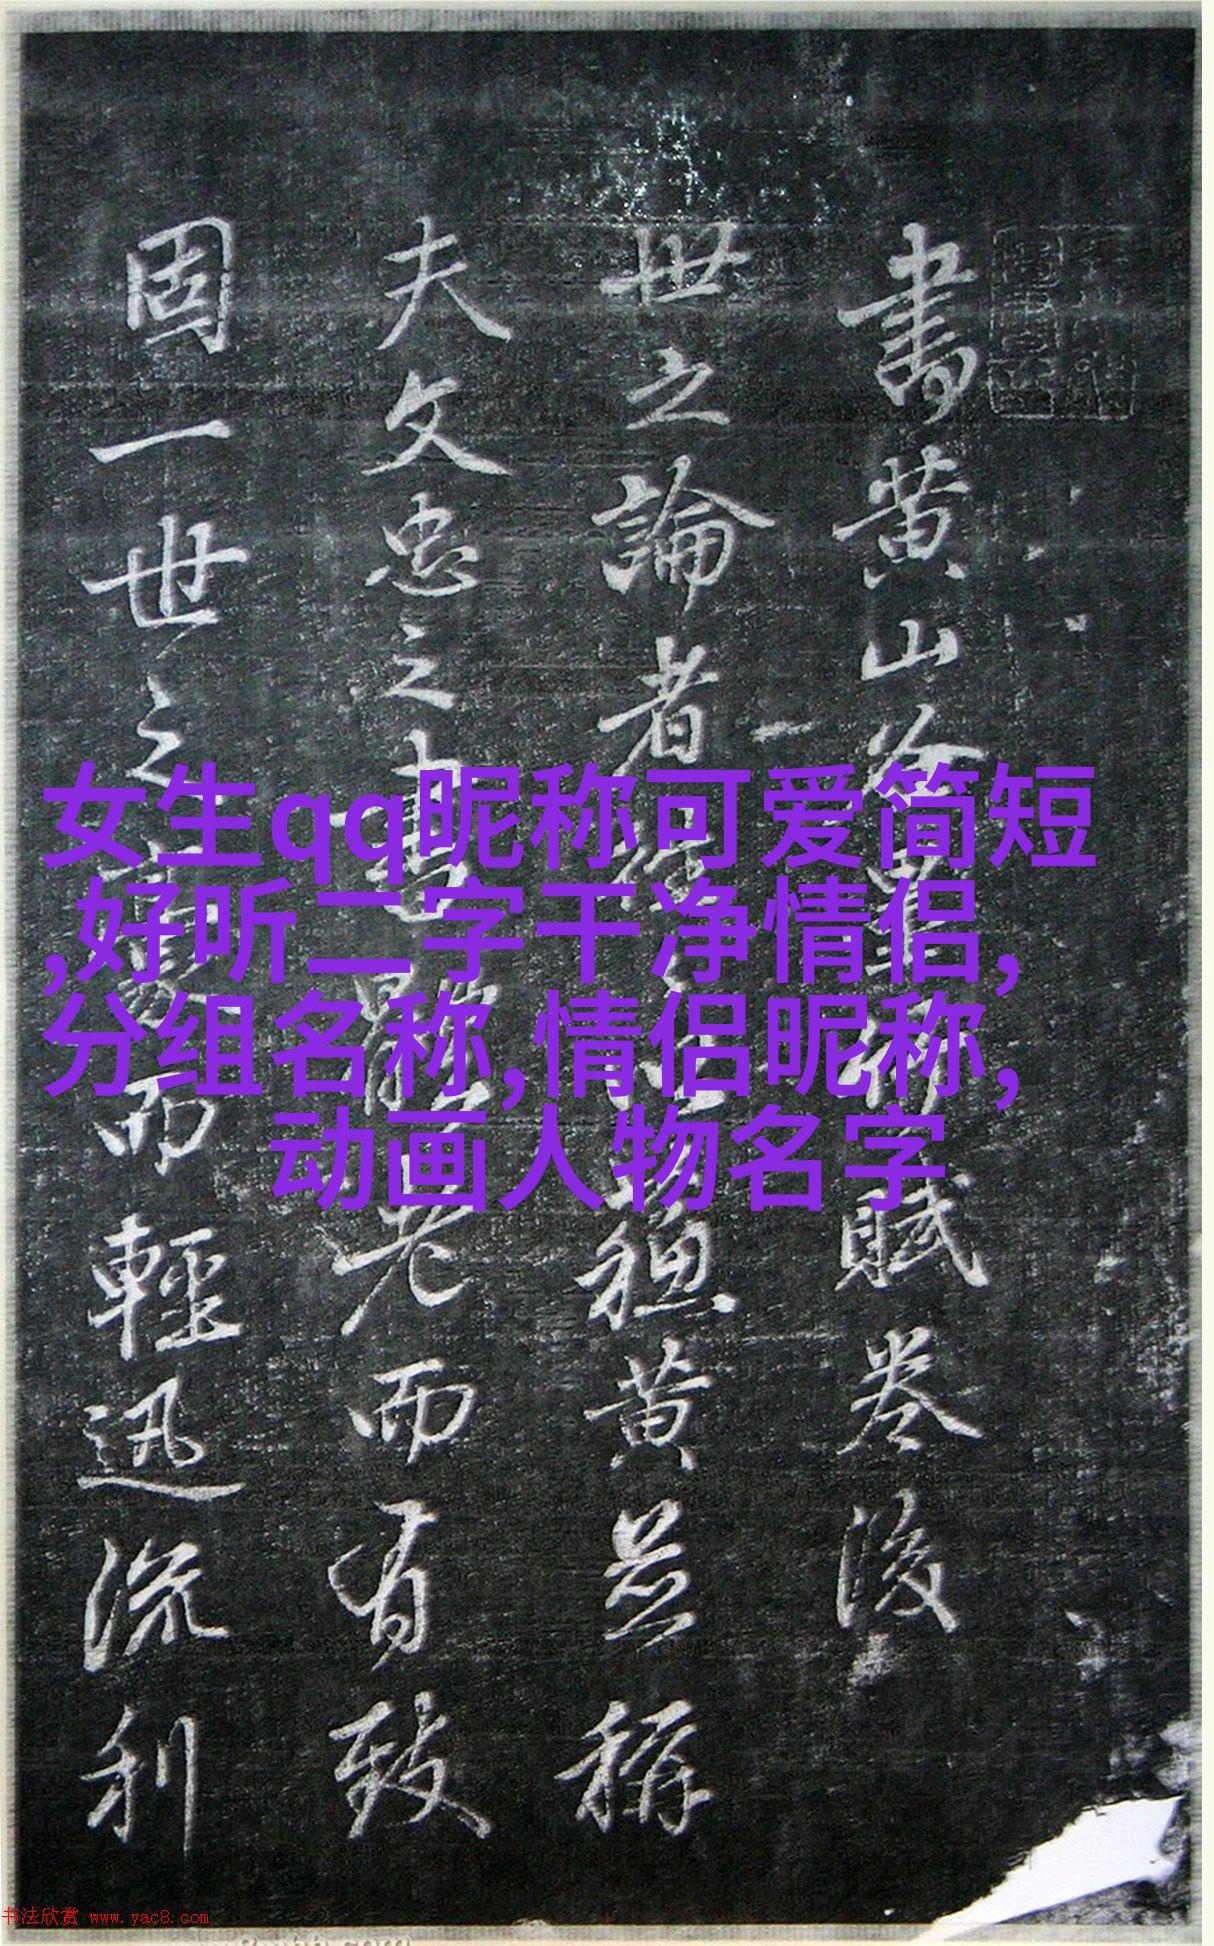 書黄山
賦卷後
世之論者
黄並稱
夫文忠之書
老而有致
固一世之
而輕迅流利
女生qq昵称可爱简短
,好听二字干净情侣,
分组名称,情侣昵称,
动画人物名字
书法欣赏 www.yac8.com